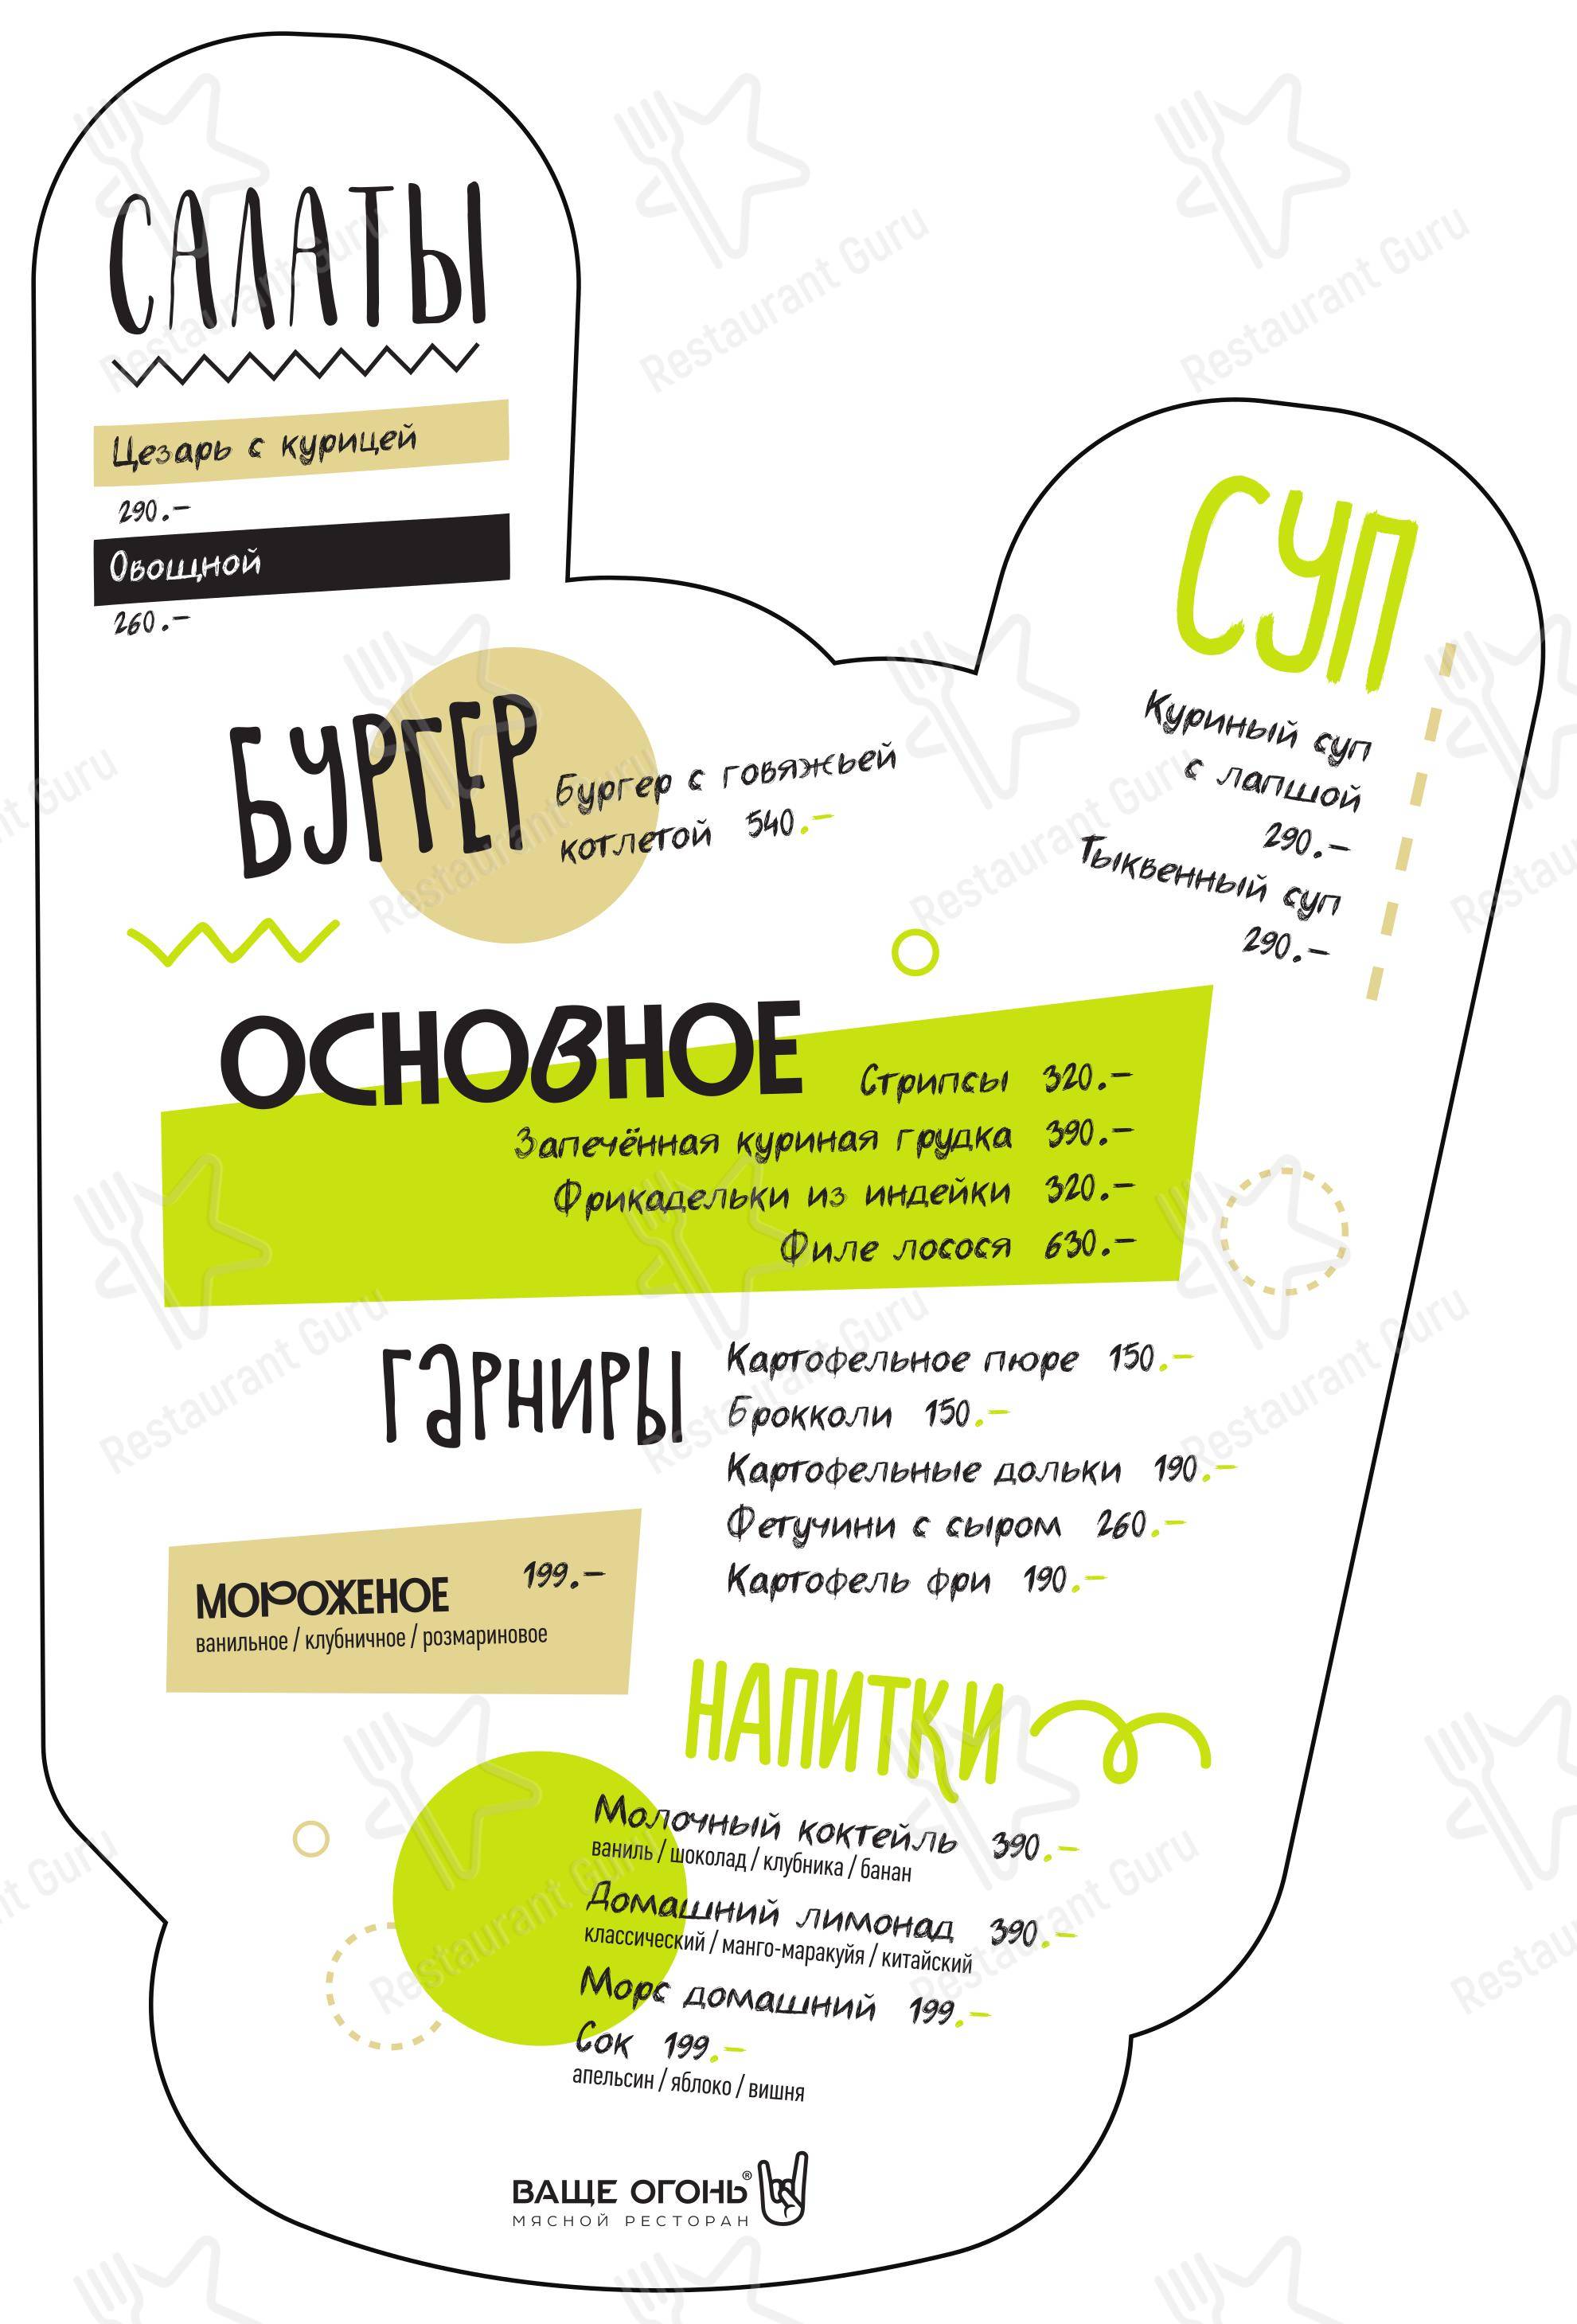 САЛАТЫ
Цезарь с курицей
290.–
Овощной
260.–
СУП
Куриный суп
с лапшой
290.–
Тыквенный суп
290.–
БУРГЕР
Бургер с говяжьей
котлетой 540.–
ОСНОВНОЕ
Стрипсы 320.–
Запечённая куриная грудка 390.–
Фрикадельки из индейки 320.–
Филе лосося 630.–
ГАРНИРЫ
Картофельное пюре 150.–
Брокколи 150.–
Картофельные дольки 190.–
Фетучини с сыром 260.–
Картофель фри 190.–
МОРОЖЕНОЕ 199.–
ванильное / клубничное / розмариновое
НАПИТКИ
Молочный коктейль 390.–
ваниль / шоколад / клубника / банан
Домашний лимонад 390.–
классический / манго-маракуйя / китайский
Морс домашний 199.–
Сок 199.–
апельсин / яблоко / вишня
ВАЩЕ ОГОНЬ®
МЯСНОЙ РЕСТОРАН
Restaurant Guru